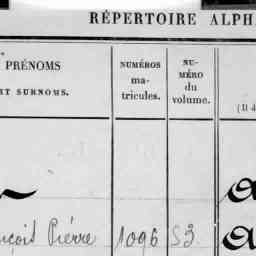 RÉPERTOIRE ALPH
PRÉNOMS
ET SURNOMS.
NUMÉROS
ma-
tricules.
NU-
MÉRO
du
volume.
(Il 4
nçois Piérre 1096 S3.